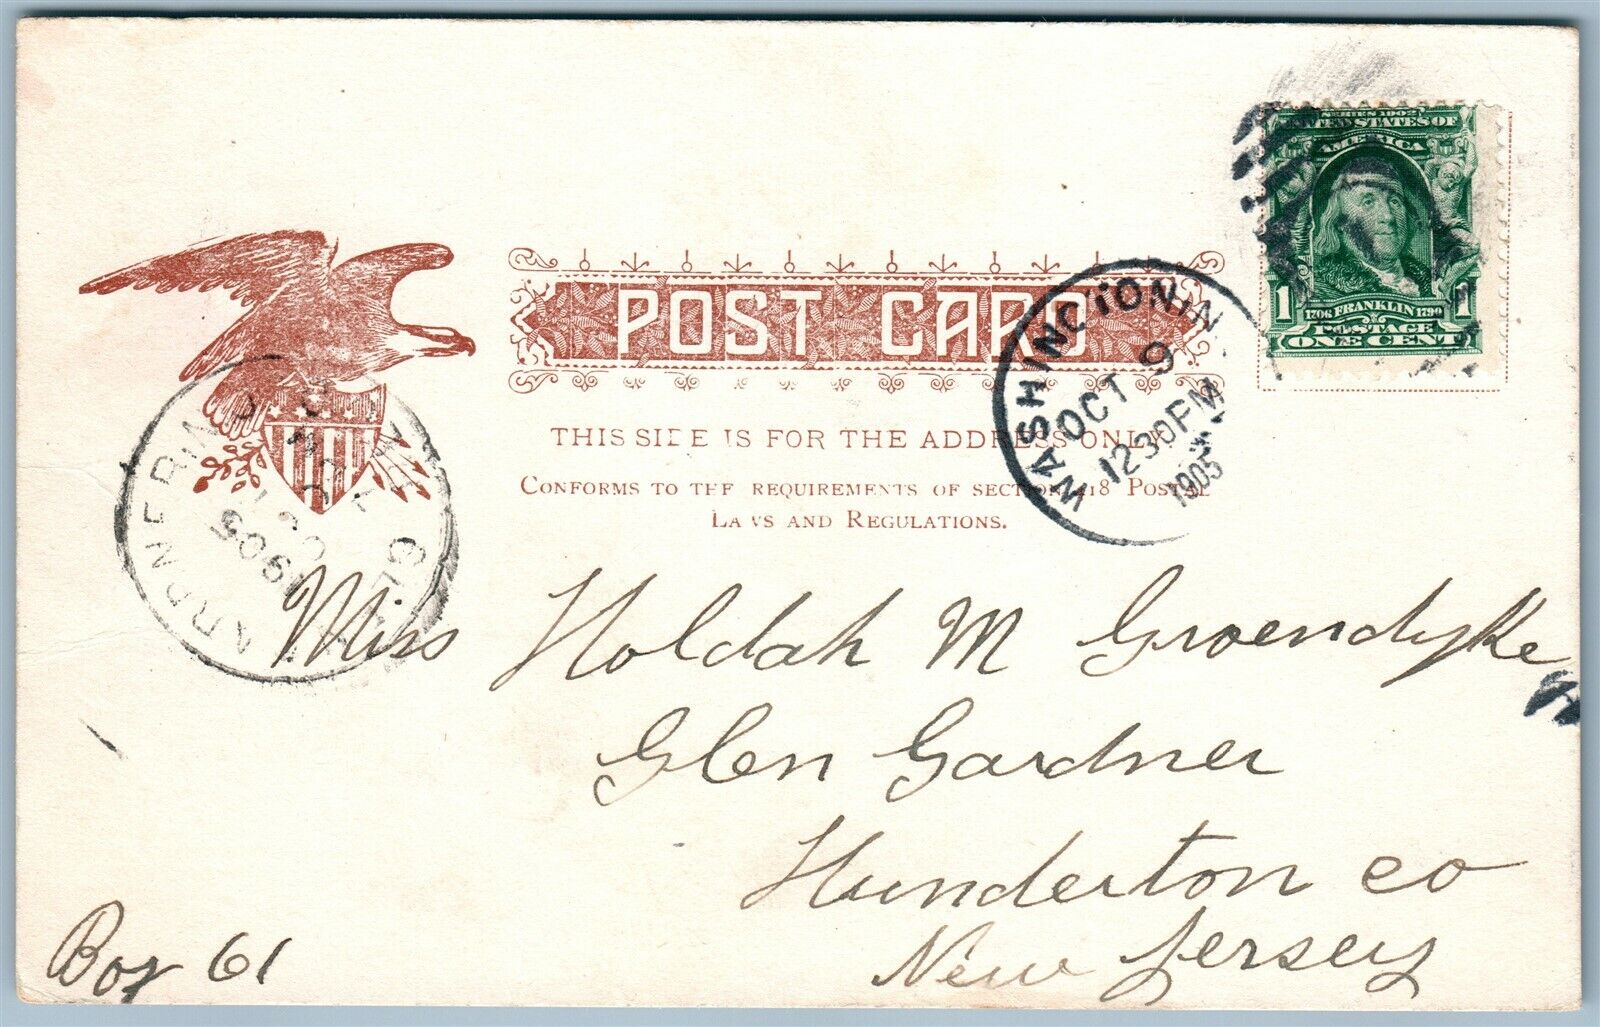 SERIES 1902
UNITED STATES OF
AMERICA
1706 FRANKLIN 1790
1 POSTAGE 1
ONE CENT
POST CARD
WASHINGTON N
OCT 9
1230PM
1905
THIS SIDE IS FOR THE ADDRESS ONLY
CONFORMS TO THE REQUIREMENTS OF SECTION 418 POSTAL
LAWS AND REGULATIONS.
GLEN GARDNER N J
1905
Miss Holdah M Groendyke
Glen Gardner
Hunderton co
New Jersey
Box 61